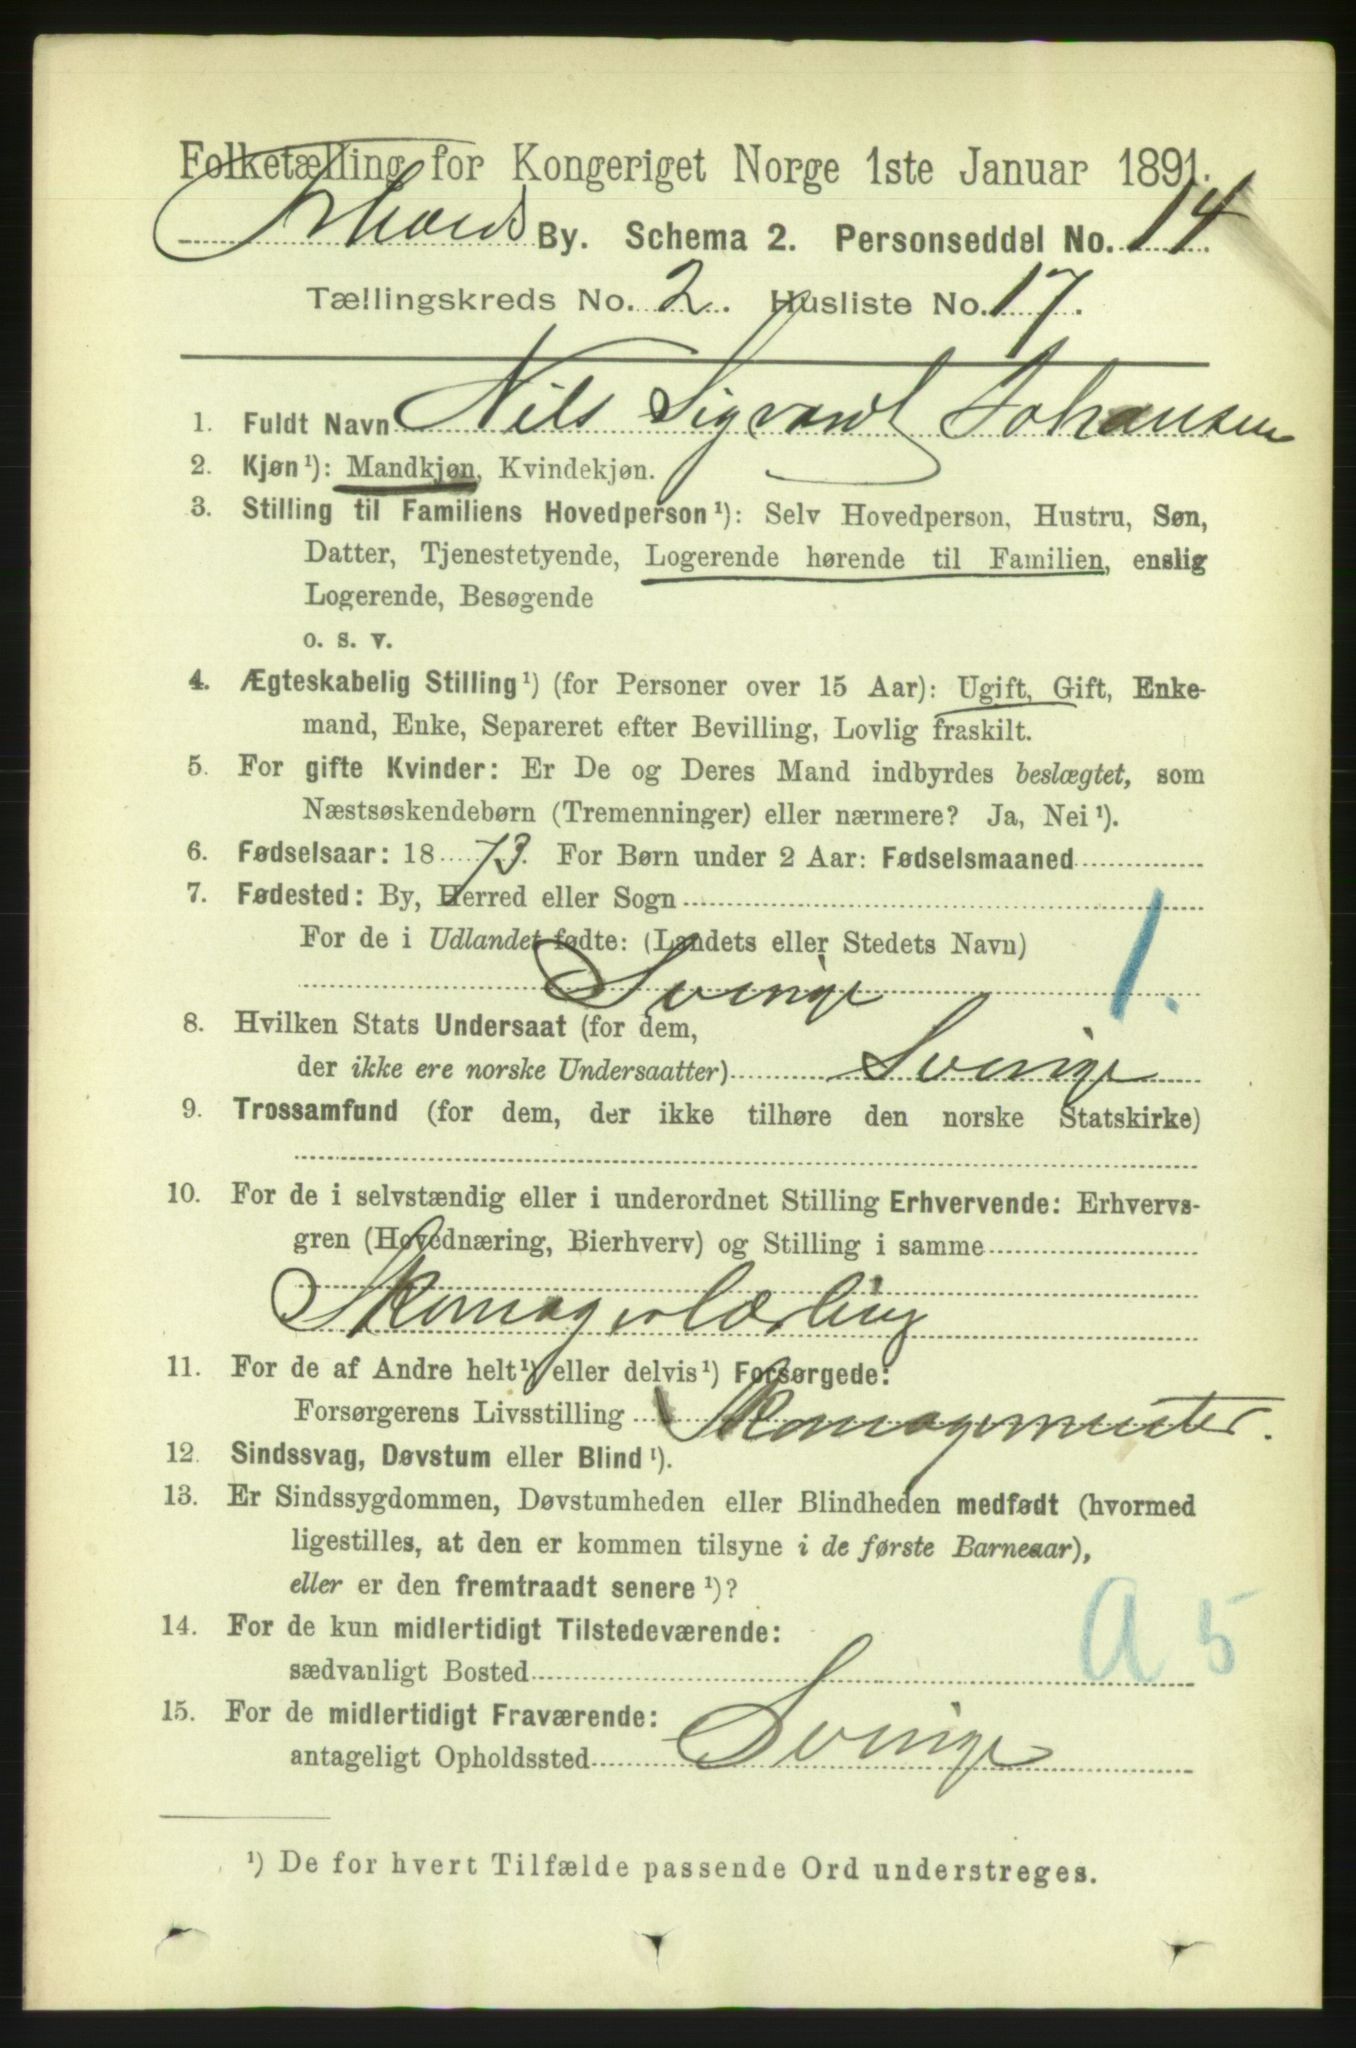 Folketælling for Kongeriget Norge 1ste Januar 1891.
By. Schema 2. Personseddel No. 14
Tællingskreds No. 2. Husliste No. 17.
1. Fuldt Navn Nils Sigvard Johansen
2. Kjøn ¹): Mandkjøn, Kvindekjøn.
3. Stilling til Familiens Hovedperson ¹): Selv Hovedperson, Hustru, Søn,
Datter, Tjenestetyende, Logerende hørende til Familien, enslig
Logerende, Besøgende
o. s. v.
4. Ægteskabelig Stilling ¹) (for Personer over 15 Aar): Ugift, Gift, Enke-
mand, Enke, Separeret efter Bevilling, Lovlig fraskilt.
5. For gifte Kvinder: Er De og Deres Mand indbyrdes beslægtet, som
Næstsøskendebørn (Tremenninger) eller nærmere? Ja, Nei ¹).
6. Fødselsaar: 18 73. For Børn under 2 Aar: Fødselsmaaned
7. Fødested: By, Herred eller Sogn
For de i Udlandet fødte: (Landets eller Stedets Navn)
Sverige 1.
8. Hvilken Stats Undersaat (for dem,
der ikke ere norske Undersaatter) Sverige
9. Trossamfund (for dem, der ikke tilhøre den norske Statskirke)
10. For de i selvstændig eller i underordnet Stilling Erhvervende: Erhvervs-
gren (Hovednæring, Bierhverv) og Stilling i samme
Skomagerlærling
11. For de af Andre helt ¹) eller delvis ¹) Forsørgede:
Forsørgerens Livsstilling Skomagermester.
12. Sindssvag, Døvstum eller Blind ¹).
13. Er Sindssygdommen, Døvstumheden eller Blindheden medfødt (hvormed
ligestilles, at den er kommen tilsyne i de første Barneaar),
eller er den fremtraadt senere ¹)?
14. For de kun midlertidigt Tilstedeværende:
sædvanligt Bosted A 5
15. For de midlertidigt Fraværende:
antageligt Opholdssted Sverige
¹) De for hvert Tilfælde passende Ord understreges.